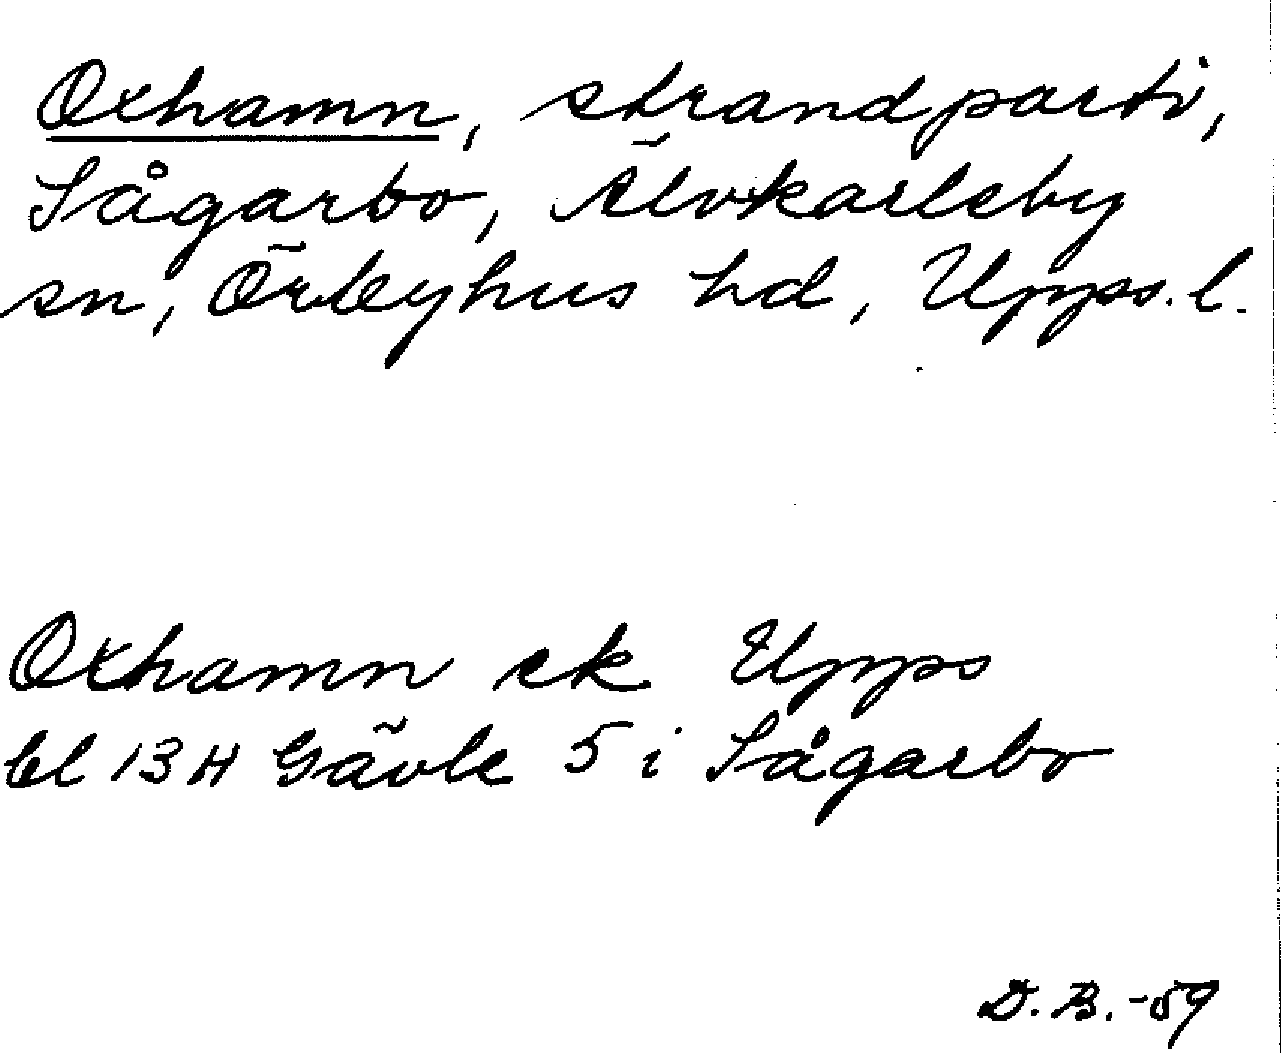 Oxhamn, strandparti,
Sågarbo, Älvkarleby
sn, Örbyhus hd, Upps. l.
Oxhamn ek Upps
bl 13 H Gävle 5 i Sågarbo
D. B. -59